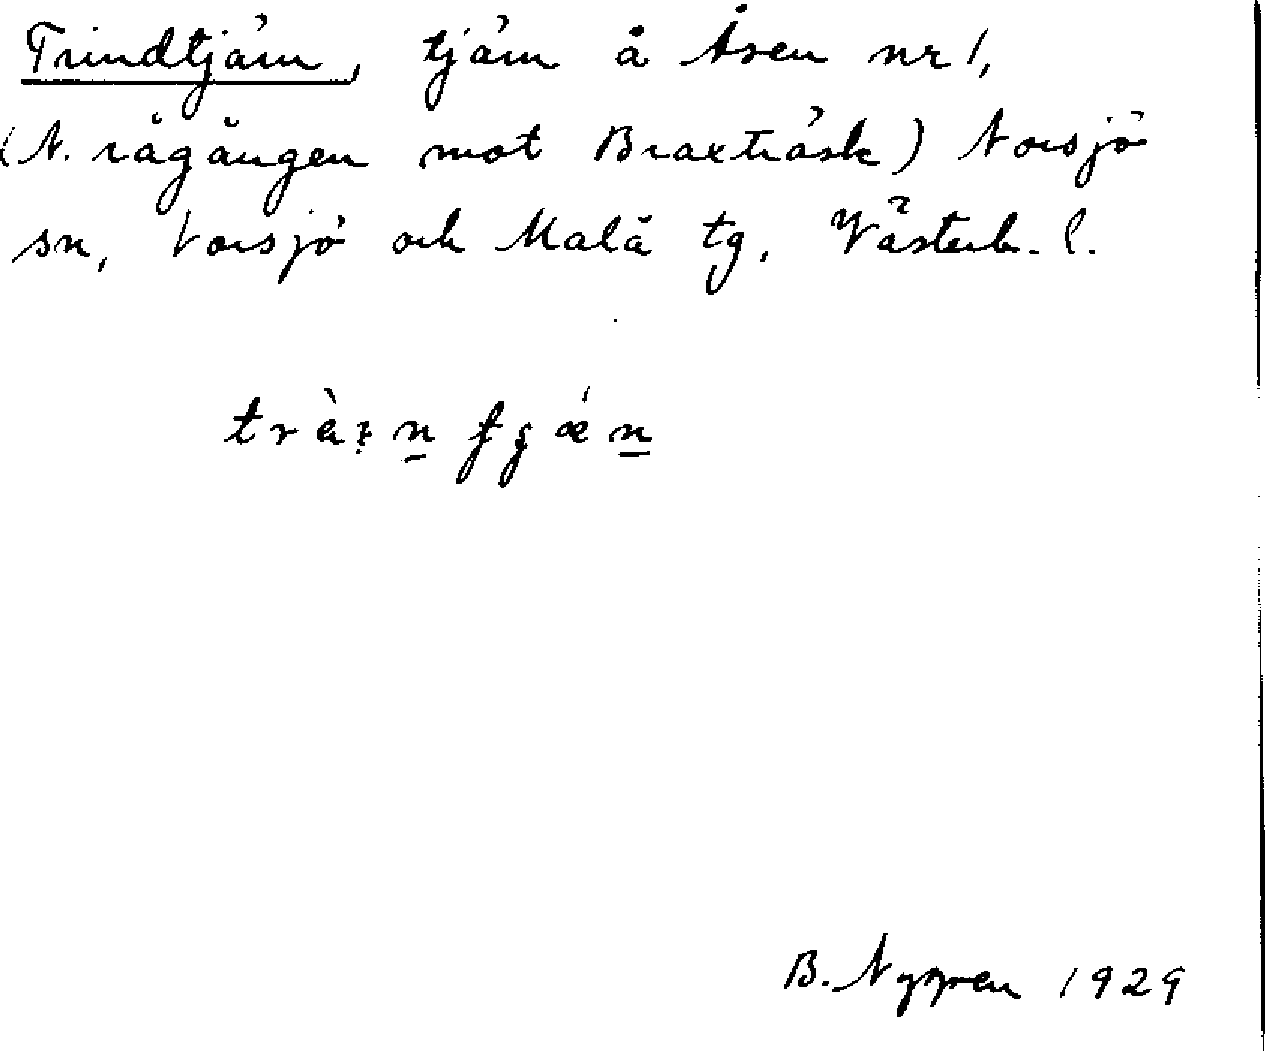 Trindtjärn, tjärn å Åsen nr 1,
(N. rågången mot Braxträsk) Norsjö
sn, Norsjö och Malå tg, Västerb. l.
B. Nygren 1929